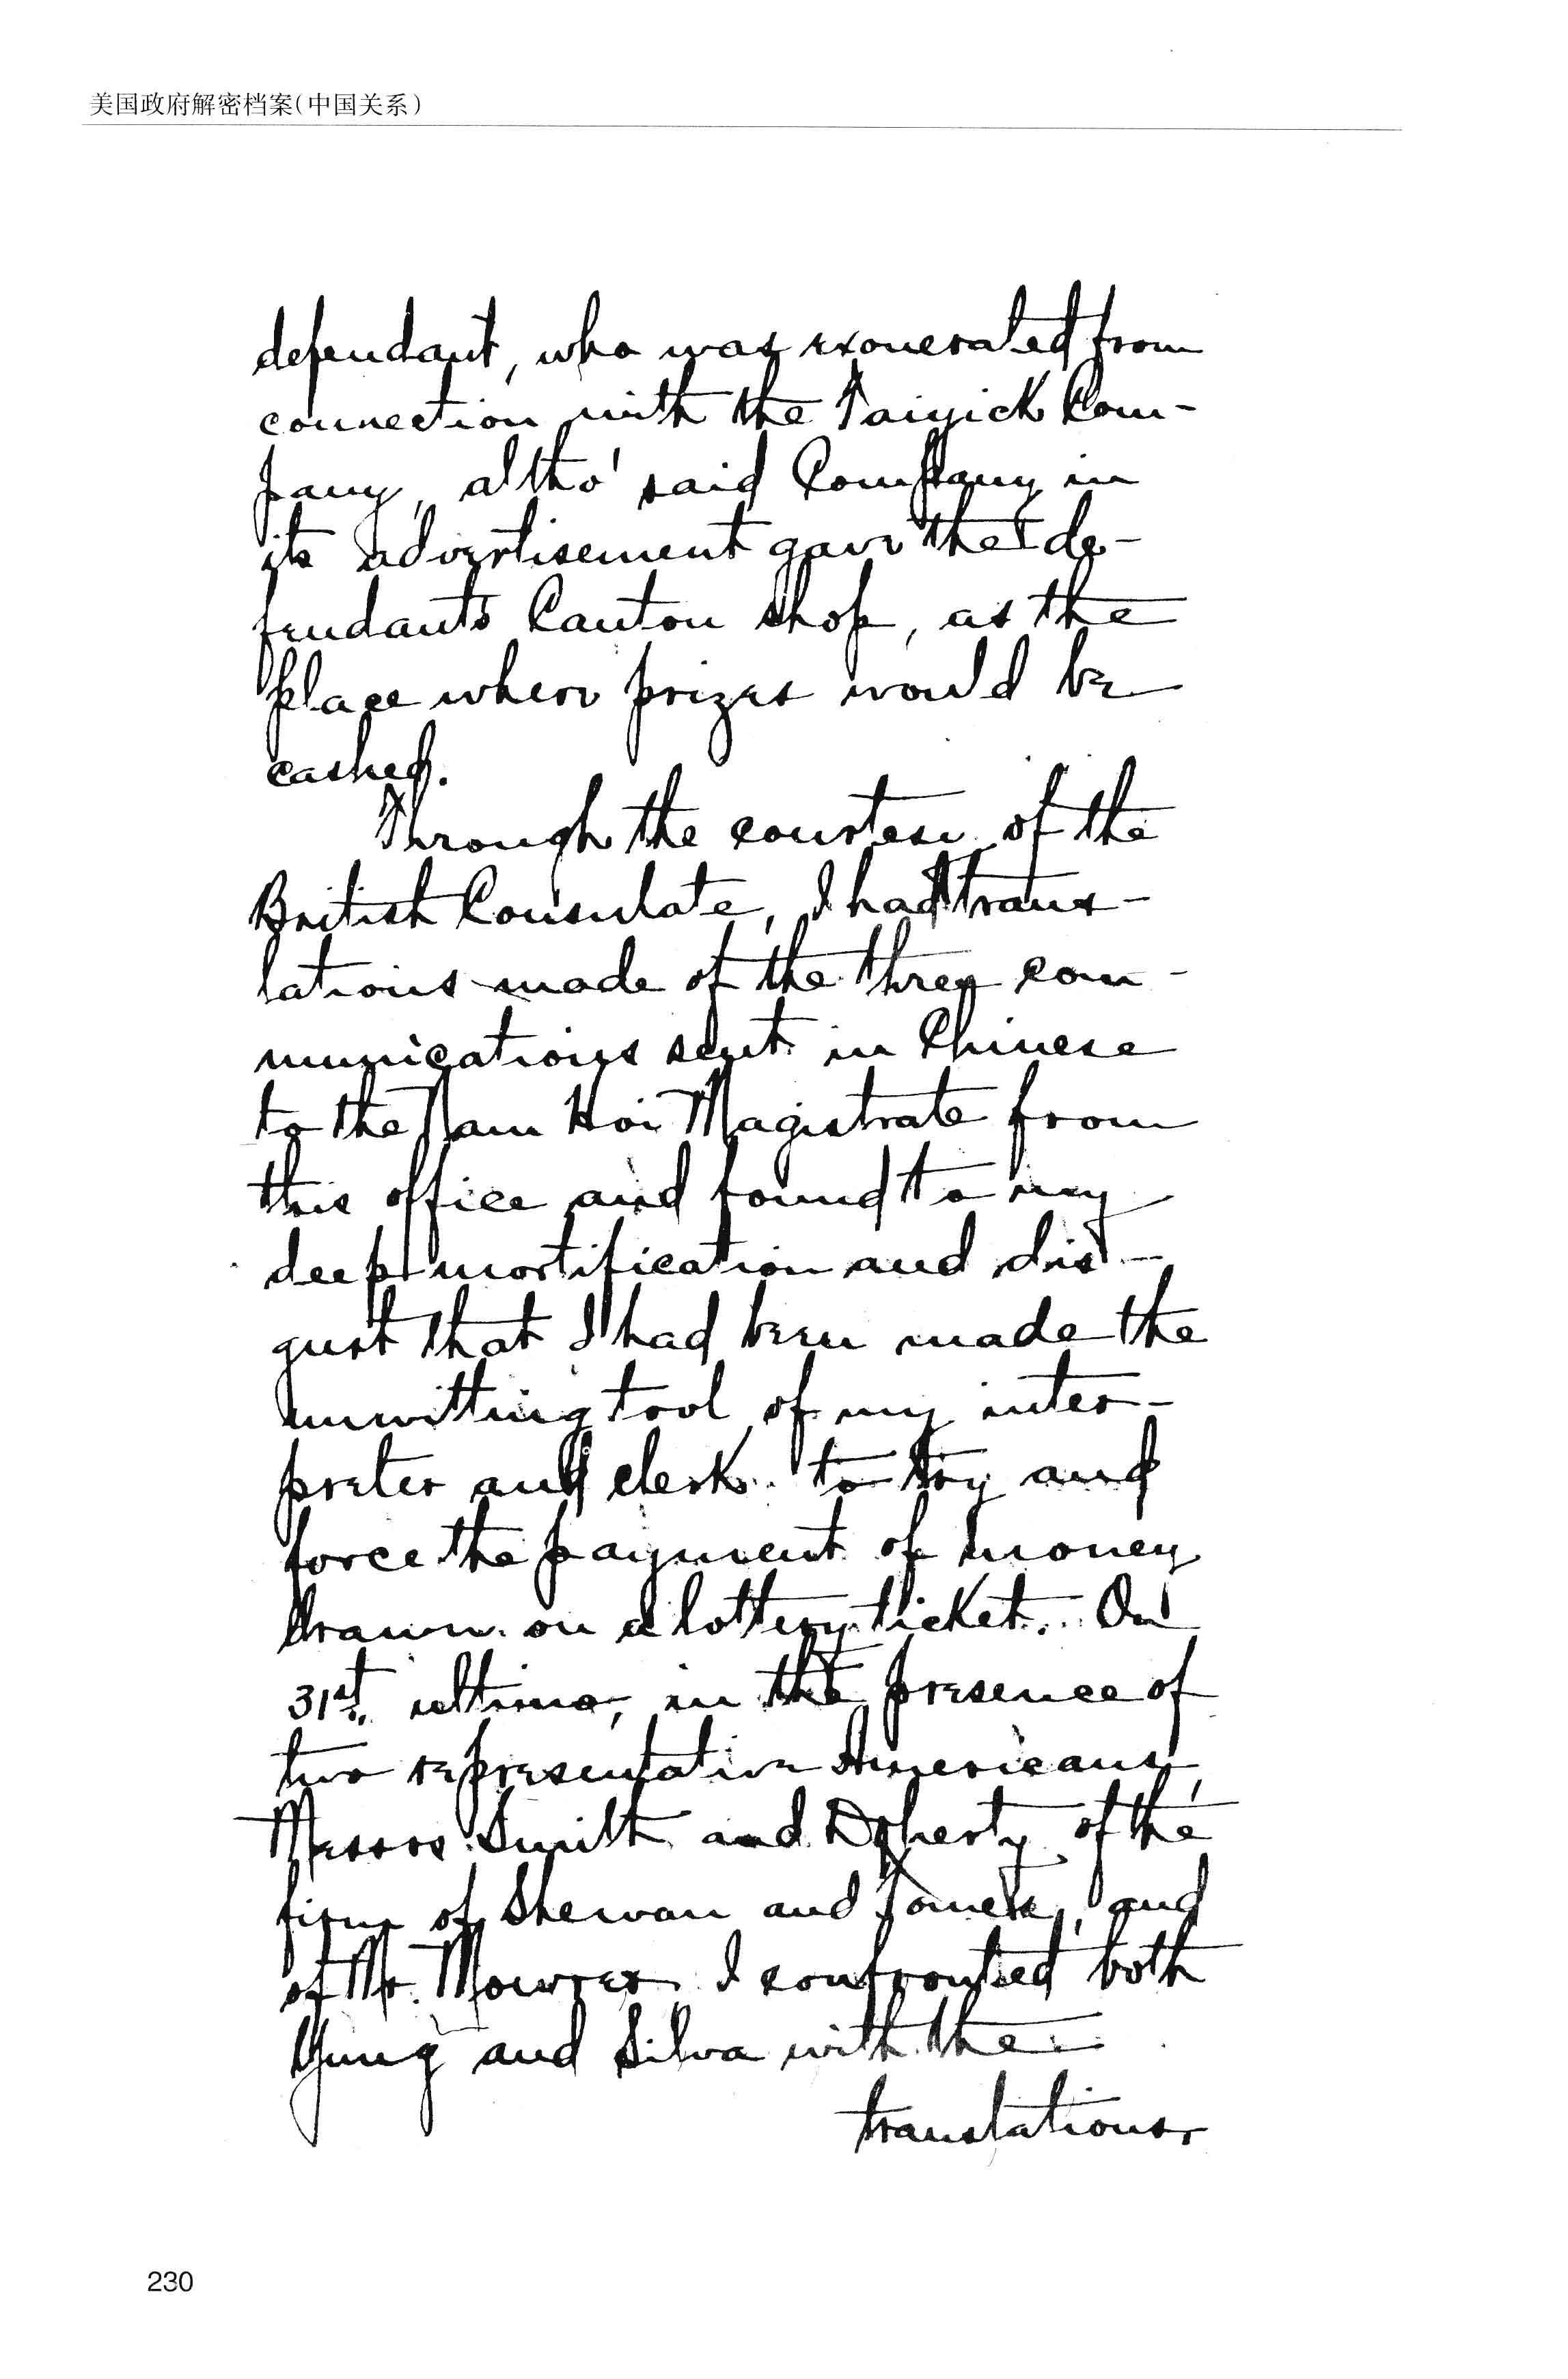 美国政府解密档案(中国关系)
defendant, who was exonerated from
connection with the Taiyick Com-
pany, altho' said Company in
its advertisement gave the de-
fendant's Canton shop, as the
place where prizes would be
cashed.
Through the courtesy of the
British Consulate, I had trans-
lations made of the three com-
munications sent in Chinese
to the Nam Hoi Magistrate from
this office and found to my
deep mortification and dis-
gust that I had been made the
unwitting tool of my inter-
preter and clerk to try and
force the payment of money
drawn on a lottery ticket. On
31st. ultimo, in the presence of
two representative Americans,
Messrs. Smith and Doherty of the
firm of Shewan and Tomes, and
of Mr. Mowrer I confronted both
Yung and Silva with the
translations,
230